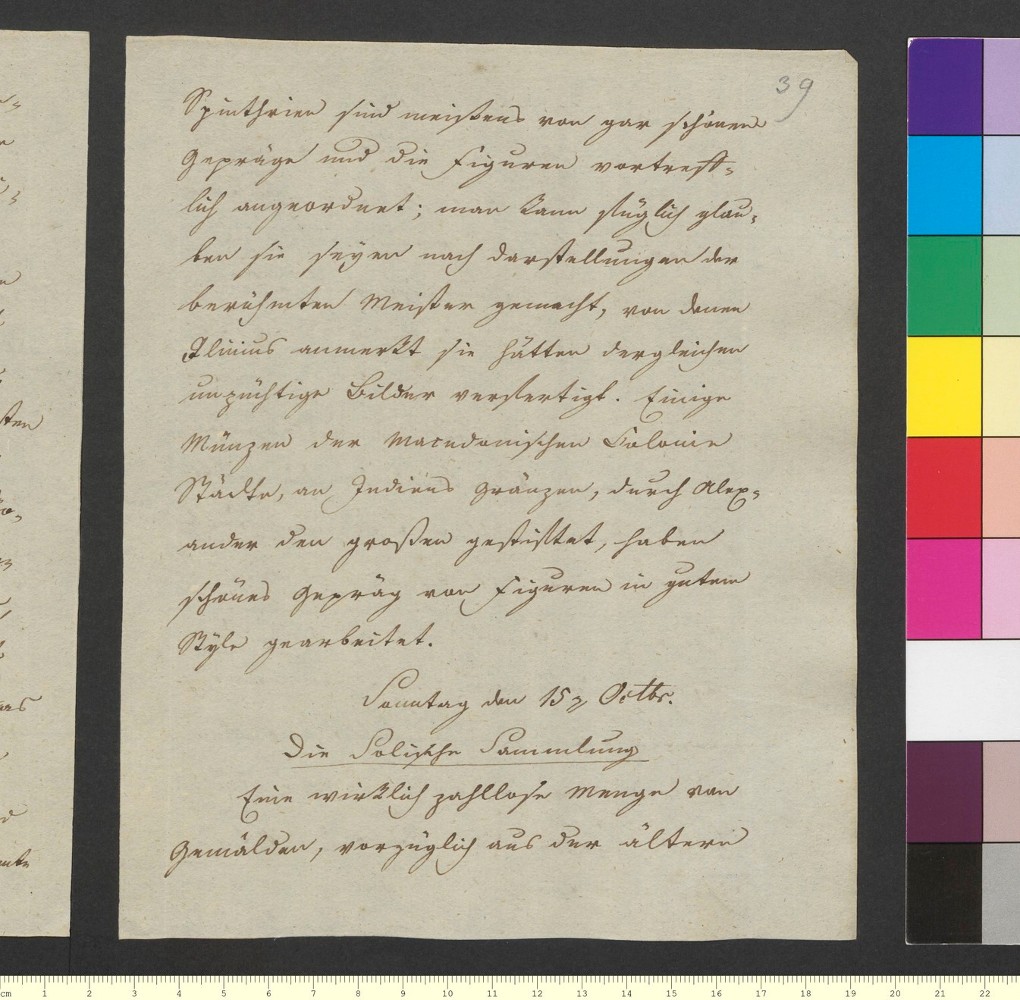 39
Spinthrien sind meistens von gar schönem
Gepräge und die Figuren vortreff-
lich angeordnet; man kann füglich glau-
ben sie seyen nach Darstellungen der
berühmten Meister gemacht, von denen
Plinius anmerkt sie hätten dergleichen
unzüchtige Bilder verfertigt. Einige
Münzen der Macedonischen Colonie
Städte, an Indiens Gränzen, durch Alex-
ander den großen gestiftet, haben
schönes Gepräg von Figuren in gutem
Style gearbeitet.
Sonntag den 15n Octbr.
Die Solische Sammlung
Eine wirklich zahllose Menge von
Gemälden, vorzüglich aus der ältern